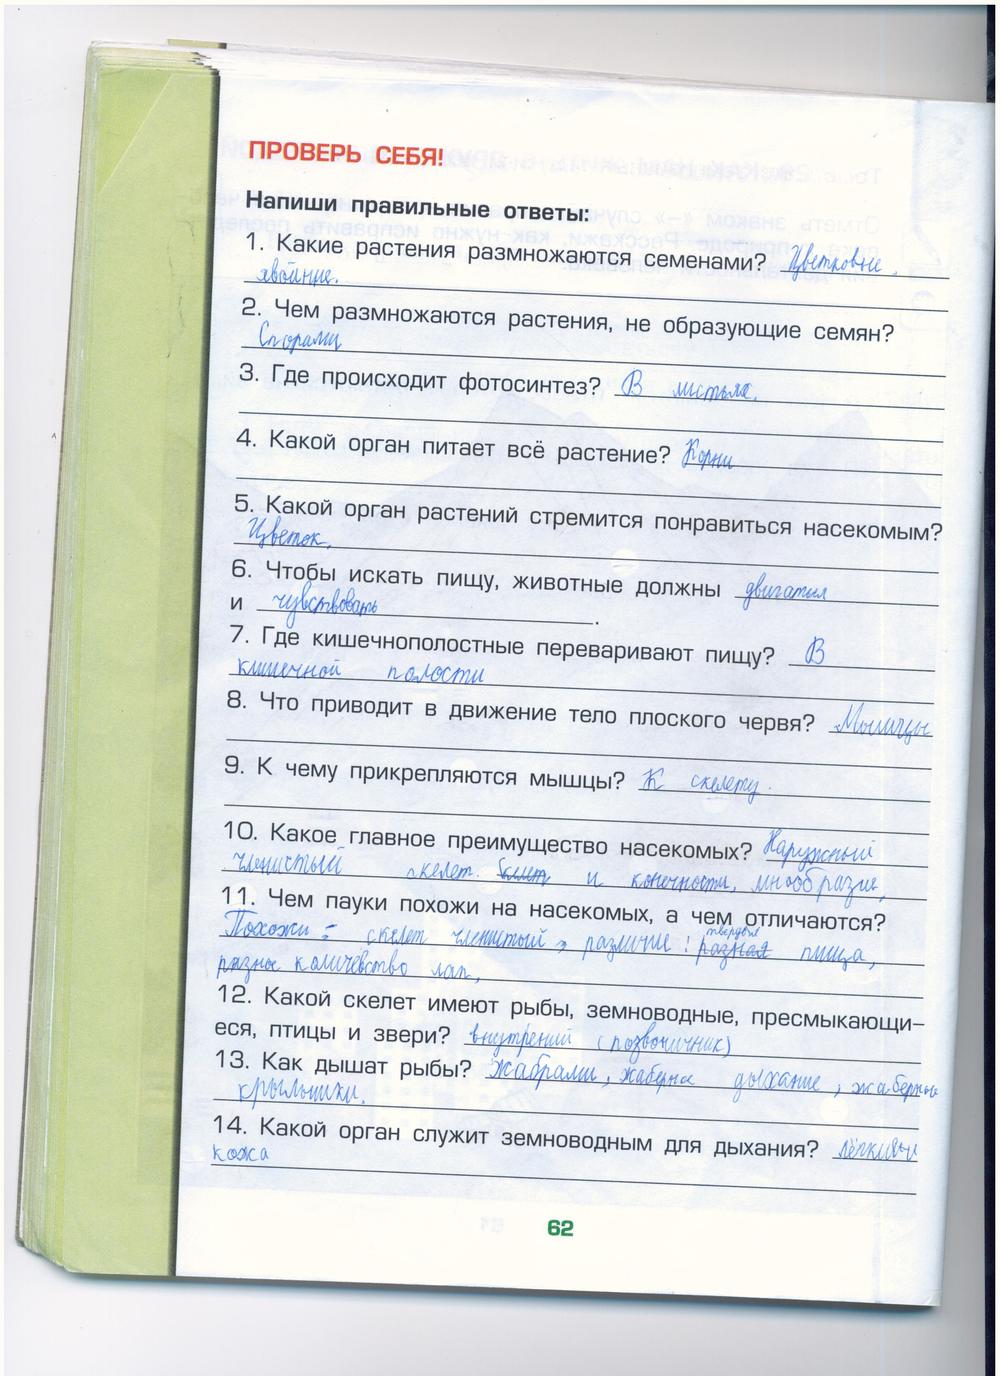 ПРОВЕРЬ СЕБЯ!
Напиши правильные ответы:
1. Какие растения размножаются семенами? Цветковые,
хвойние.
2. Чем размножаются растения, не образующие семян?
Спорами
3. Где происходит фотосинтез? В листьях.
4. Какой орган питает всё растение? Корни
5. Какой орган растений стремится понравиться насекомым?
Цветок.
6. Чтобы искать пищу, животные должны двигатья
и чувствовать.
7. Где кишечнополостные переваривают пищу? В
кишечной полости
8. Что приводит в движение тело плоского червя? Мышцы
9. К чему прикрепляются мышцы? К скелету.
10. Какое главное преимущество насекомых? Наружный
членистый скелет. и конечности, многообразие,
11. Чем пауки похожи на насекомых, а чем отличаются?
твердая
Похожи - скелет членистый, различие: разная пища,
разное количевство лап,
12. Какой скелет имеют рыбы, земноводные, пресмыкающи-
еся, птицы и звери? внутрений (позвоничник)
13. Как дышат рыбы? жабрами, жаберное дыхание, жаберные
крылышки.
14. Какой орган служит земноводным для дыхания? лёгкие и
кожа
62